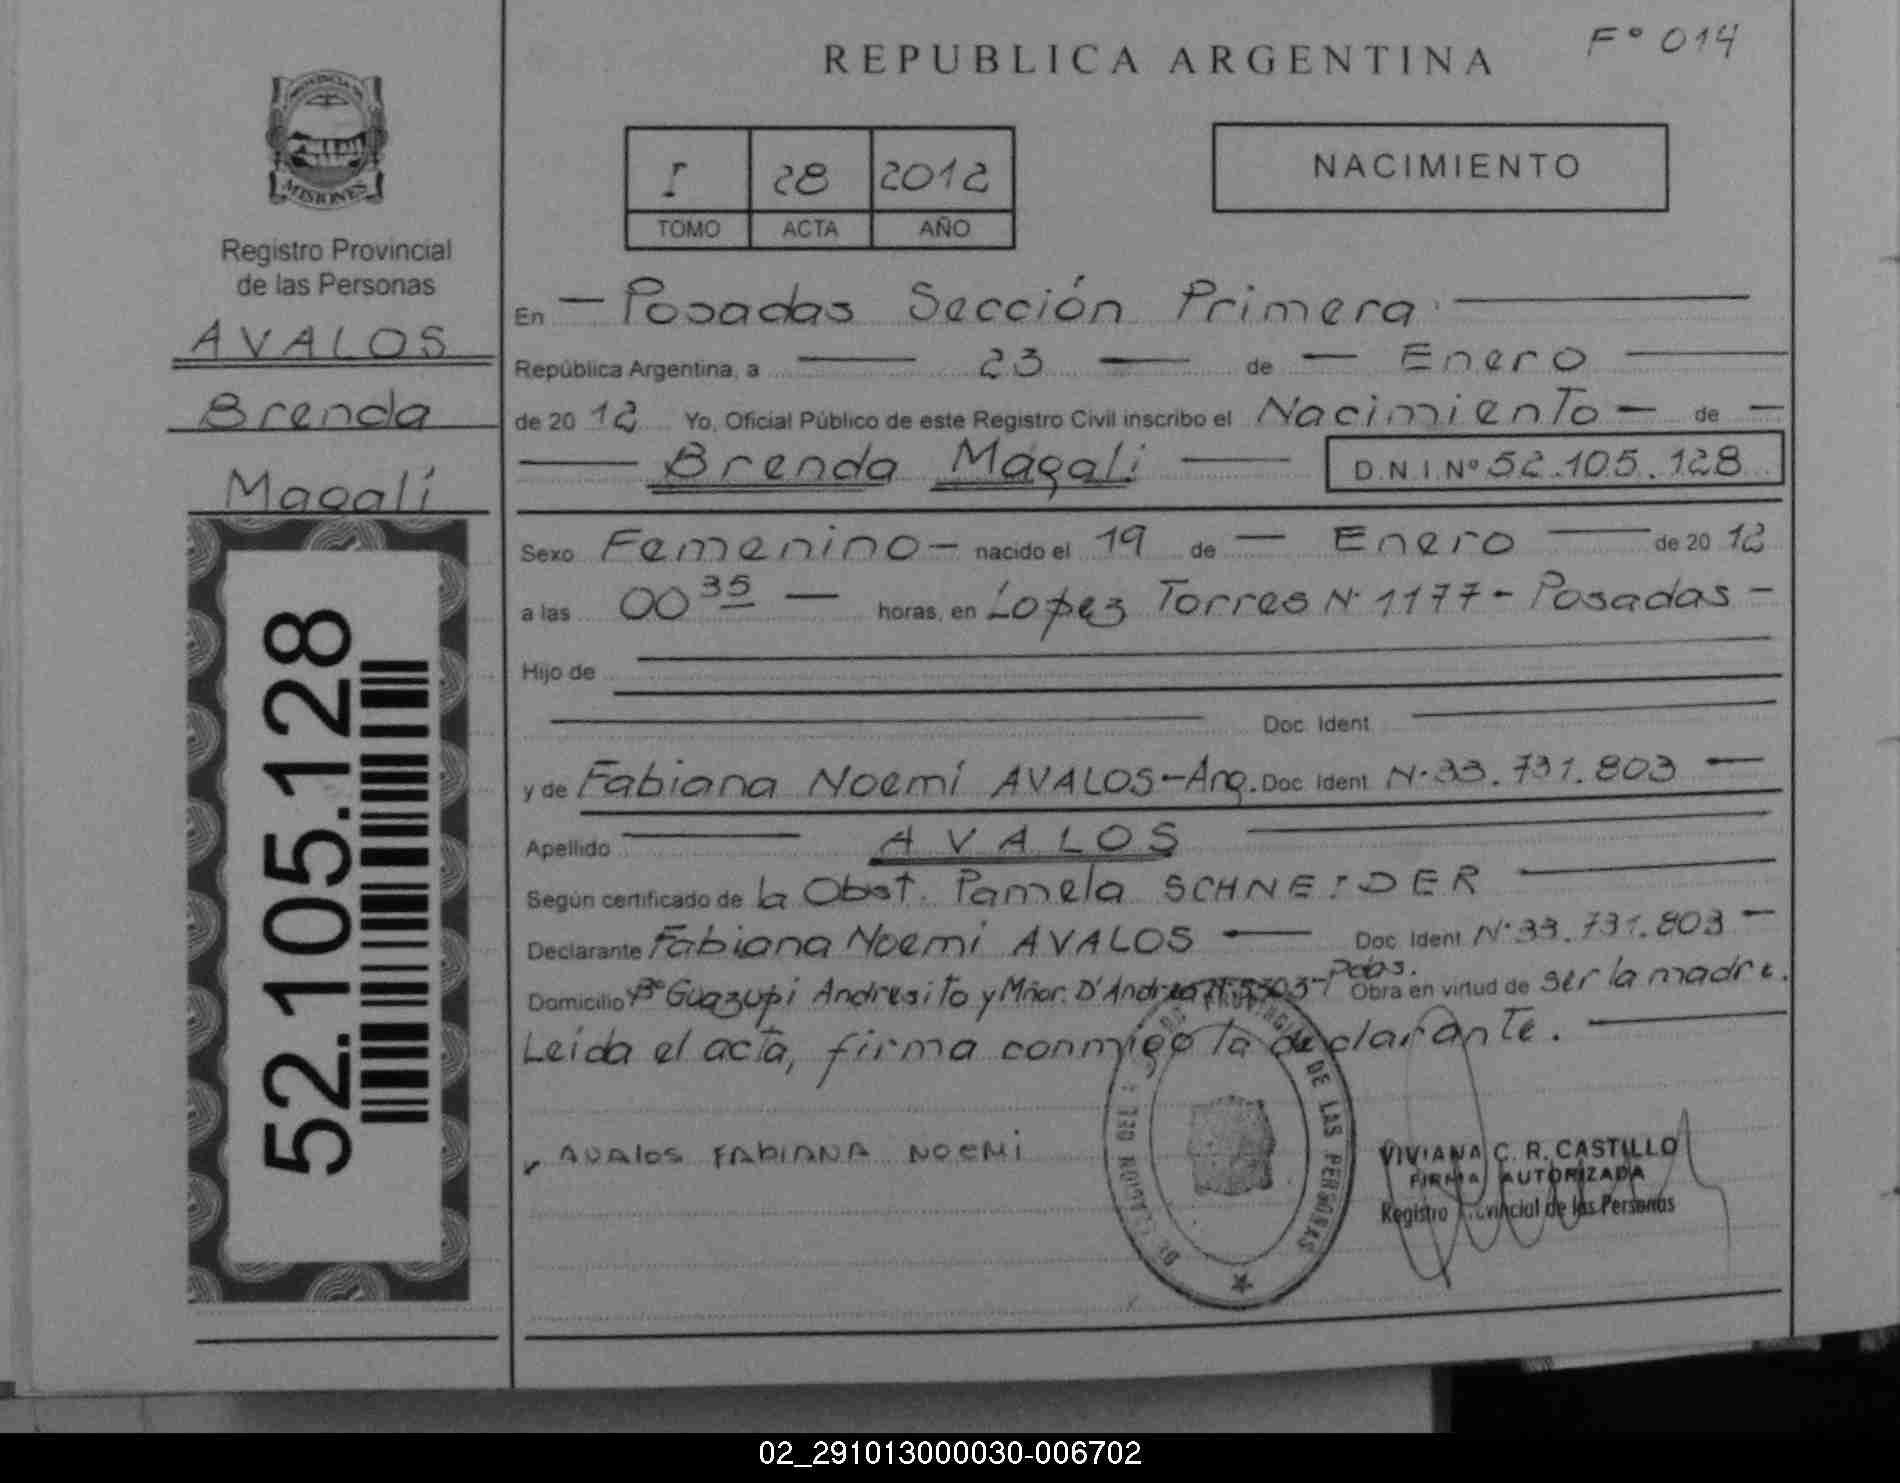 REPUBLICA ARGENTINA
Fº 014
PROVINCIA DE
MISIONES
Registro Provincial
de las Personas
AVALOS
Brenda
Magalí
52.105.128
I 28 2012
TOMO ACTA AÑO
NACIMIENTO
En — Posadas Sección Primera. —
República Argentina, a — 23 — de — Enero —
de 2012 Yo, Oficial Público de este Registro Civil inscribo el Nacimiento — de —
— Brenda Magali — D.N.I. Nº 52.105.128
Sexo Femenino — nacido el 19 de — Enero — de 2012
a las 00 35 — horas, en Lopez Torres Nº 1177 - Posadas -
Hijo de
Doc. Ident.
y de Fabiana Noemí AVALOS - Arg. Doc. Ident. Nº 33.731.803 —
Apellido — AVALOS —
Según certificado de la Obst. Pamela SCHNEIDER —
Declarante Fabiana Noemi AVALOS — Doc. Ident. Nº 33.731.803 —
Domicilio Bº Guazupi Andresito y Mñor. D'Andrea Nº 5303 - Pdas. Obra en virtud de ser la madre.
Leída el acta, firma conmigo la declarante. —
AVALOS FABIANA NOEMI
PROVINCIAL DE LAS PERSONAS
VIVIANA C. R. CASTILLO
FIRMA AUTORIZADA
Registro Provincial de las Personas
02_291013000030-006702